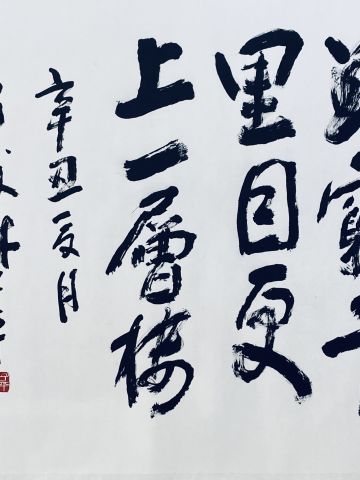 欲窮千
里目更
上一層樓
辛丑夏月